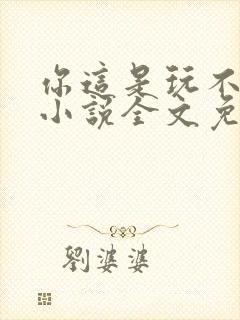 你這是玩不
小說全文免
劉婆婆